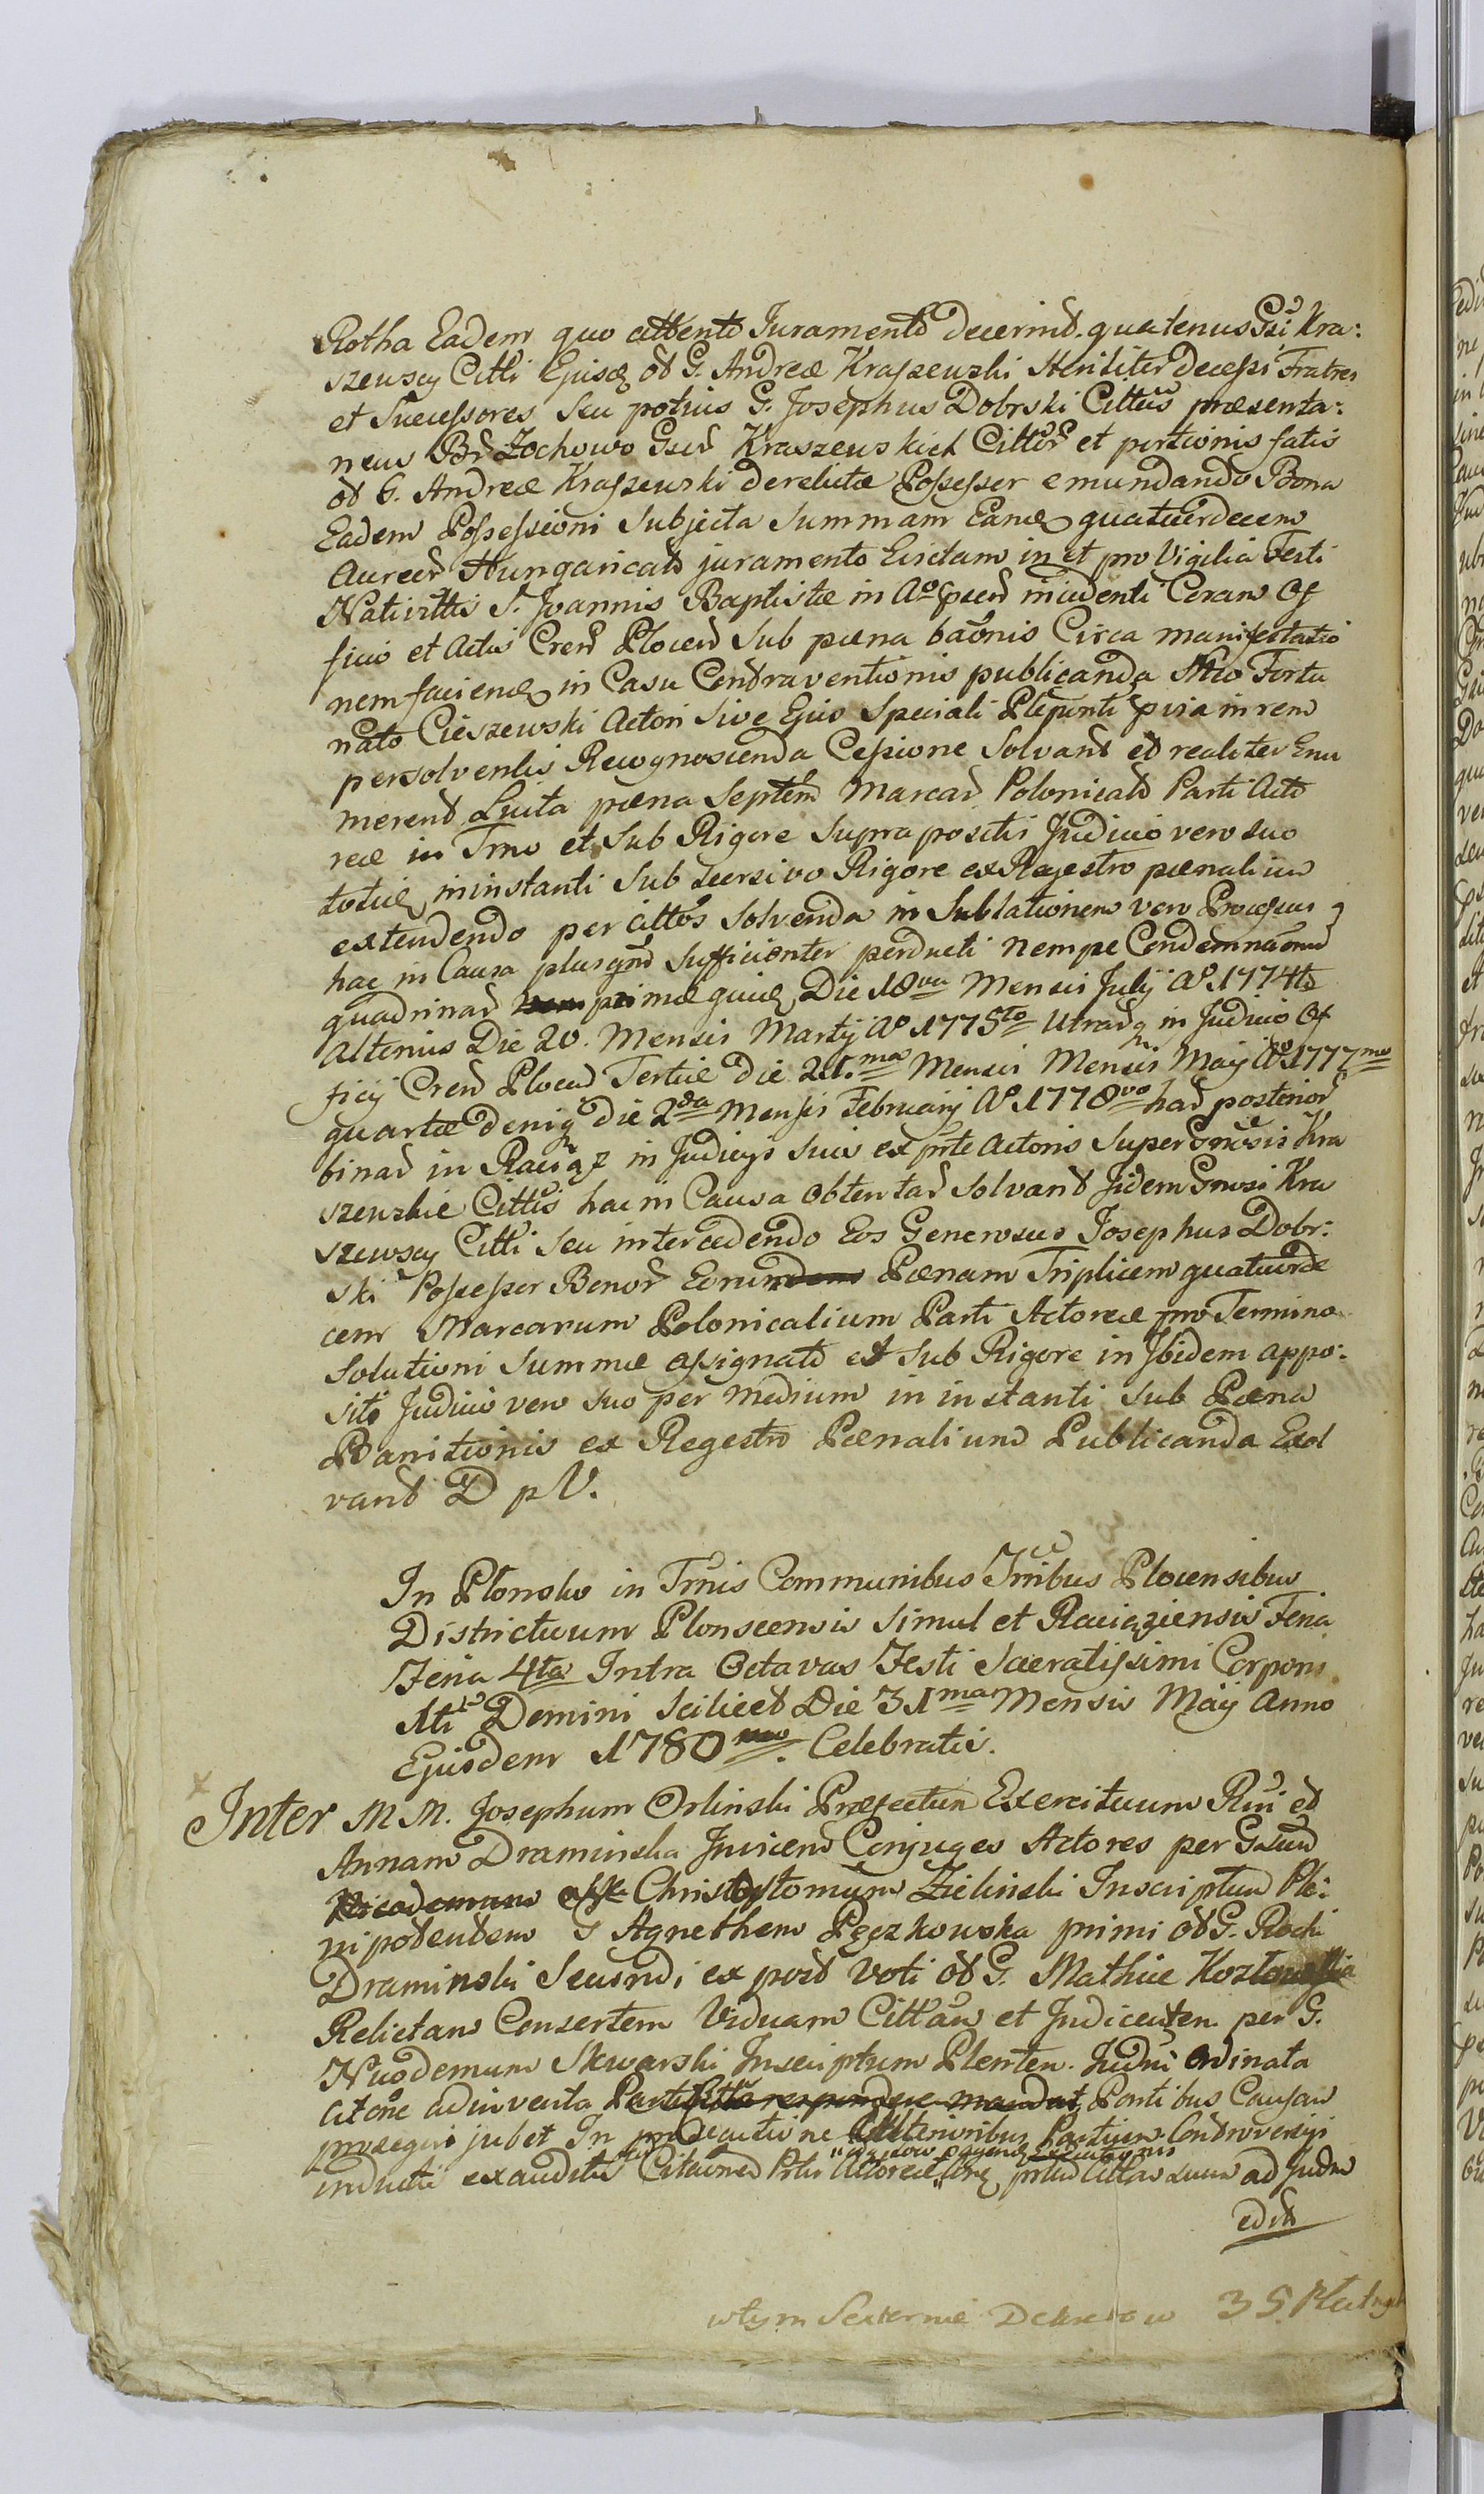 Rotha Eadem quo attento Juramento decernit quatenus Gsi Kra:
szewscy Citti Ejusdē ol G. Andreæ Kraszewski Steriliter decessi Fratres
et Successores seu potius G. Josephus Dobrski Cittus præsenta:
neus Br Zochowo Gser Kraszewskich Cittor et portionis fatis
ol G. Andreæ Kraszewski derelictæ Possessor emundando Bona
Eadem Possessioni Subjecta Summam Eandē quatuordecem
Aureor Hungaricalt juramento Evictam in et pro Vigilia Festi
Nativittis S. Joannis Baptistæ in Aō præsen incidenti Coram Of
ficio et Actis Cren Plocen Sub pæna banis Circa manifestatio
nem faciendē in Casu Contraventionis publicanda Mco Fortu
nato Cieszewski Actori Sive Ejus Speciali Plepnti prvia in rem
persolventis Recognoscenda Cessione Solvant et realiter Enu
merent Luita pæna Septem Marcar Polonicalt Parti Acto
reæ in Tmo et Sub Rigore Supra positis Judicio vero suo
totidē in instanti Sub Recursivo Rigore ex Regestro pænalium
extendendo per cittos solvenda in Sublationem vero Processus
hac in Causa plusqm̄ Sufficienter perducti nempe Condemnaōnum
quadrinar primæ quidē Die 18va Mensis Julij Aō 1774to
Alterius Die 20. Mensis Martij Aō 1775to Utrarq in Judicio Of
ficij Cren Plocen Tertiæ die 21.ma Mensis Mensis Maij Aō 1777mo
quartæ deniq die 2da Mensis Februarij Aō 1778vo har posterior
binar in Raciąz in Judicijs suis ex prte Actoris Super Gnosis Kra
szewskie Cittis hac in Causa obtentar Solvant Jidem Gnosi Kra
szewscy Citti seu intercedendo Eos Generosus Josephus Dobr:
ski Possessor Bonor Eorundem Pænam Triplicem quatuorde
cem Marcarum Polonicalium Parti Actoreæ pro Termino
Solutioni Summæ assignato et Sub Rigore in Jbidem appo:
sito Judicio vero suo per medium in instanti sub Pæna
Banitionis ex Regestro Pænalium Publicanda Exol
vant D p V.
In Płonsko in Trnis Communibus Tribus Plocensibus
Districtuum Plonscensis Simul et Raciąziensis Feria
Feria 4ta Intra Octavas Festi Sacratissimi Corporis
Xti Domini Scilicet Die 31ma Mensis Maij Anno
Ejusdem 1780mo. Celebratis.
Inter M M. Josephum Orlinski Præfectum Exercituum Rni et
Annam Draminska Invicem Conjuges Actores per G
Nicodemum Christostomum Zielinski Inscriptum Ple:
nipotentem G Agnethem Pęczkowska primi ol G. Rochi
Draminski Secundi ex post Voti ol G. Mathiæ Kozłowski
Relictam Consortem Viduam Cittam et Judicenten per G.
Nicodemum Skwarski Inscriptum Plenten. Judni Ordinata
citone adinventa Parti Citta respondere mandat Partibus Causam
prosequi jubet In prosecutione Ulterioribus Partium Controversijs
inductis exauditis Citaōned Prtis Actoreæ prtem Cittam Suum ad Judm
edit
wtym Sexternie Dekretow 35.